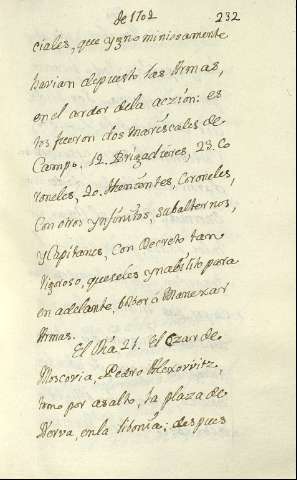 de 1702 232
ciales, que ygnominiosamente
havian depuesto las Armas,
en el ardor dela aczión: es
tos fueron dos mariscales de
Campo. 12. Brigadieres, 23. Co
roneles, 20. thenientes, Coroneles,
Con otros ynfinitos, subalternos,
y Capitanes, Con Decreto tan
rigoroso, queseles ynabilito para
en adelante, bolver á Manexar
Armas.
El Dia 21. el Czar de
Moscovia, Pedro Alexovvitz,
tomo por asalto, la plaza de
Nerva, enla libonia; despues